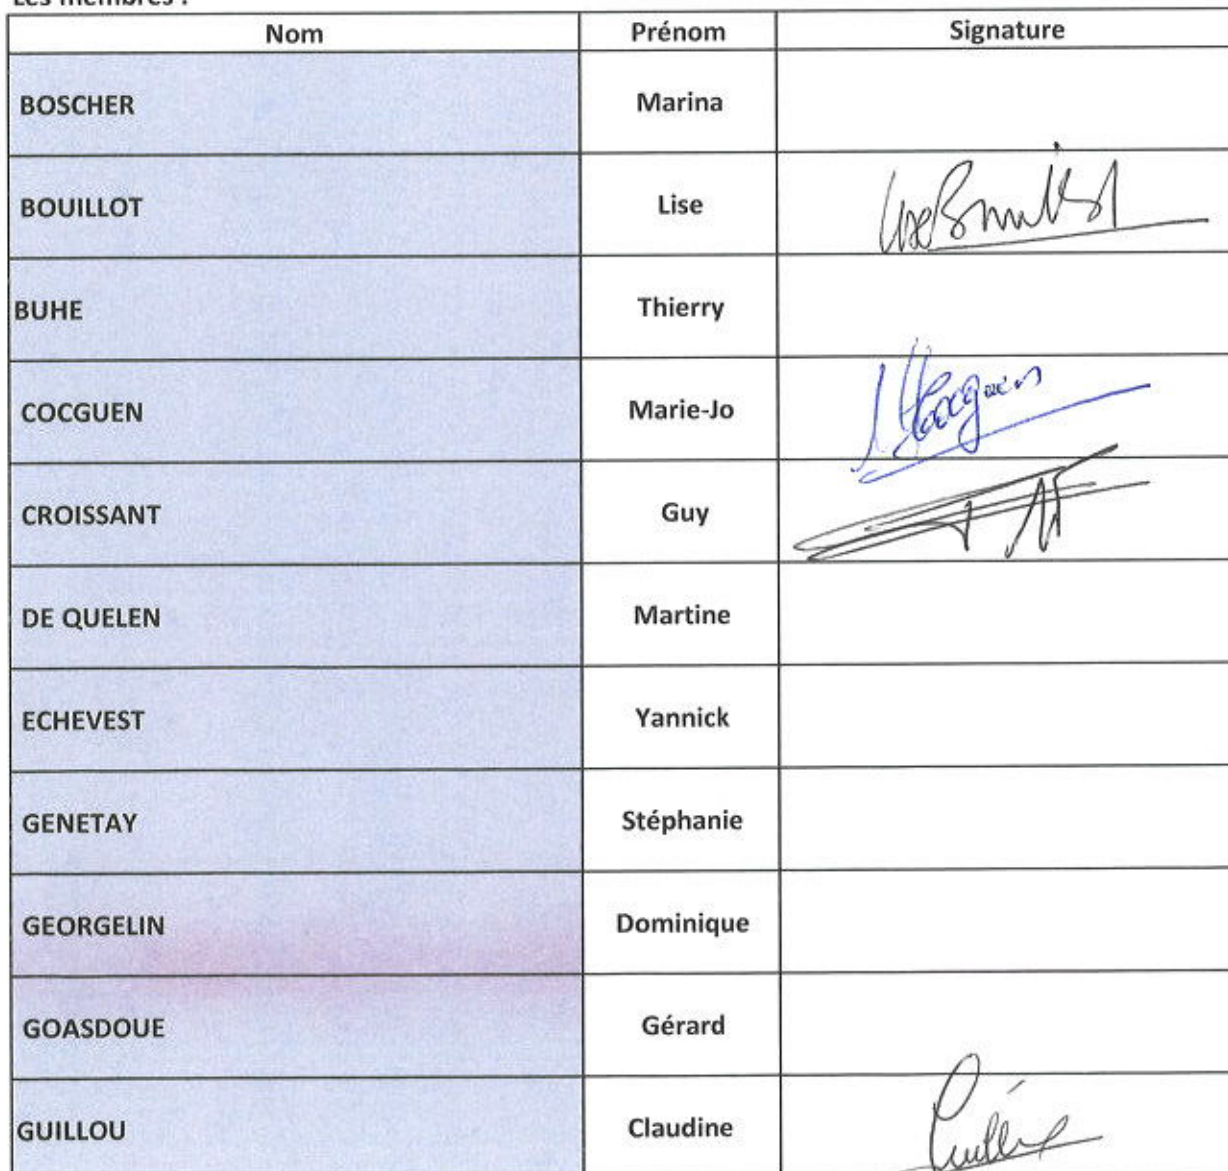 Les membres :
Nom Prénom Signature
BOSCHER Marina
BOUILLOT Lise Lise Bouillot
BUHE Thierry
COCGUEN Marie-Jo MJCocguen
CROISSANT Guy
DE QUELEN Martine
ECHEVEST Yannick
GENETAY Stéphanie
GEORGELIN Dominique
GOASDOUE Gérard
GUILLOU Claudine